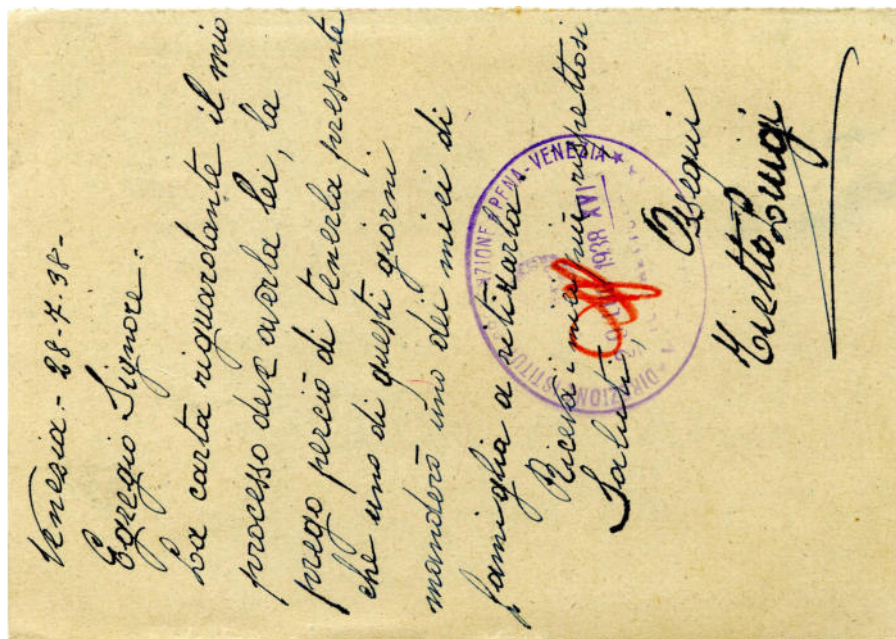 Venezia - 28-7-38 -
Egregio Signore.
La carta riguardante il mio
processo deve averla lei, la
prego perciò di tenerla presente
che uno di questi giorni
manderò uno dei miei di
famiglia a ritirarla.
Riceva i miei più rispettosi
Saluti,
Ossequi
Luigi
DIRAZIONE ISTITU AZIONE PENA - VENEZIA *
1938 XVI